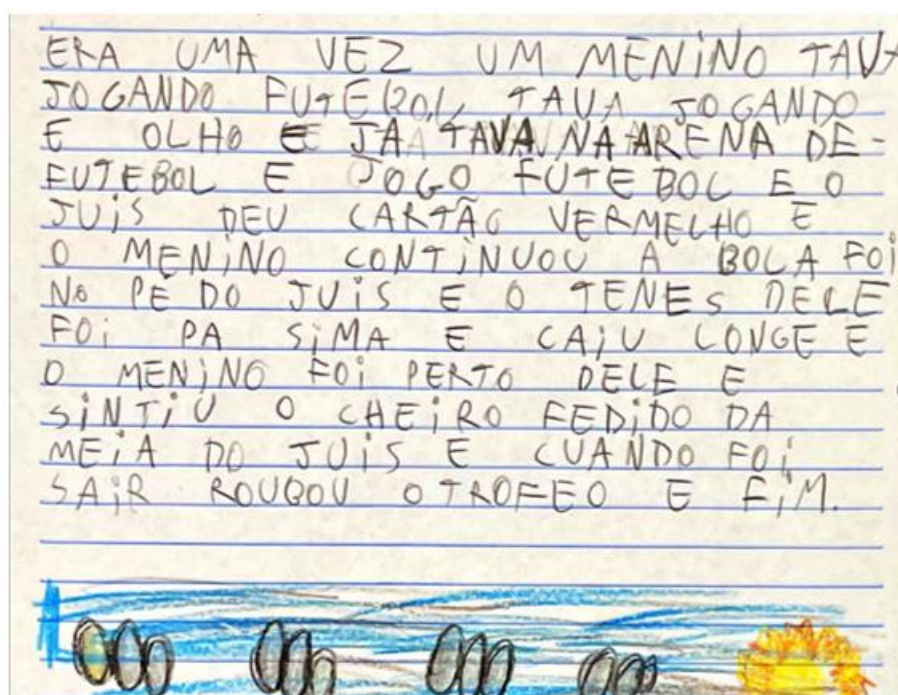 ERA UMA VEZ UM MENINO TAVA
JOGANDO FUTEBOL TAVA JOGANDO
E OLHO E JA TAVA NA ARENA DE-
FUTEBOL E JOGO FUTEBOL E O
JUIS DEU CARTÃO VERMELHO E
O MENINO CONTINUOU A BOLA FOI
NO PÉ DO JUIS E O TENES DELE
FOI PA SIMA E CAIU LONGE E
O MENINO FOI PERTO DELE E
SINTIU O CHEIRO FEDIDO DA
MEIA DO JUIS E CUANDO FOI
SAIR ROUBOU O TROFEO E FIM.